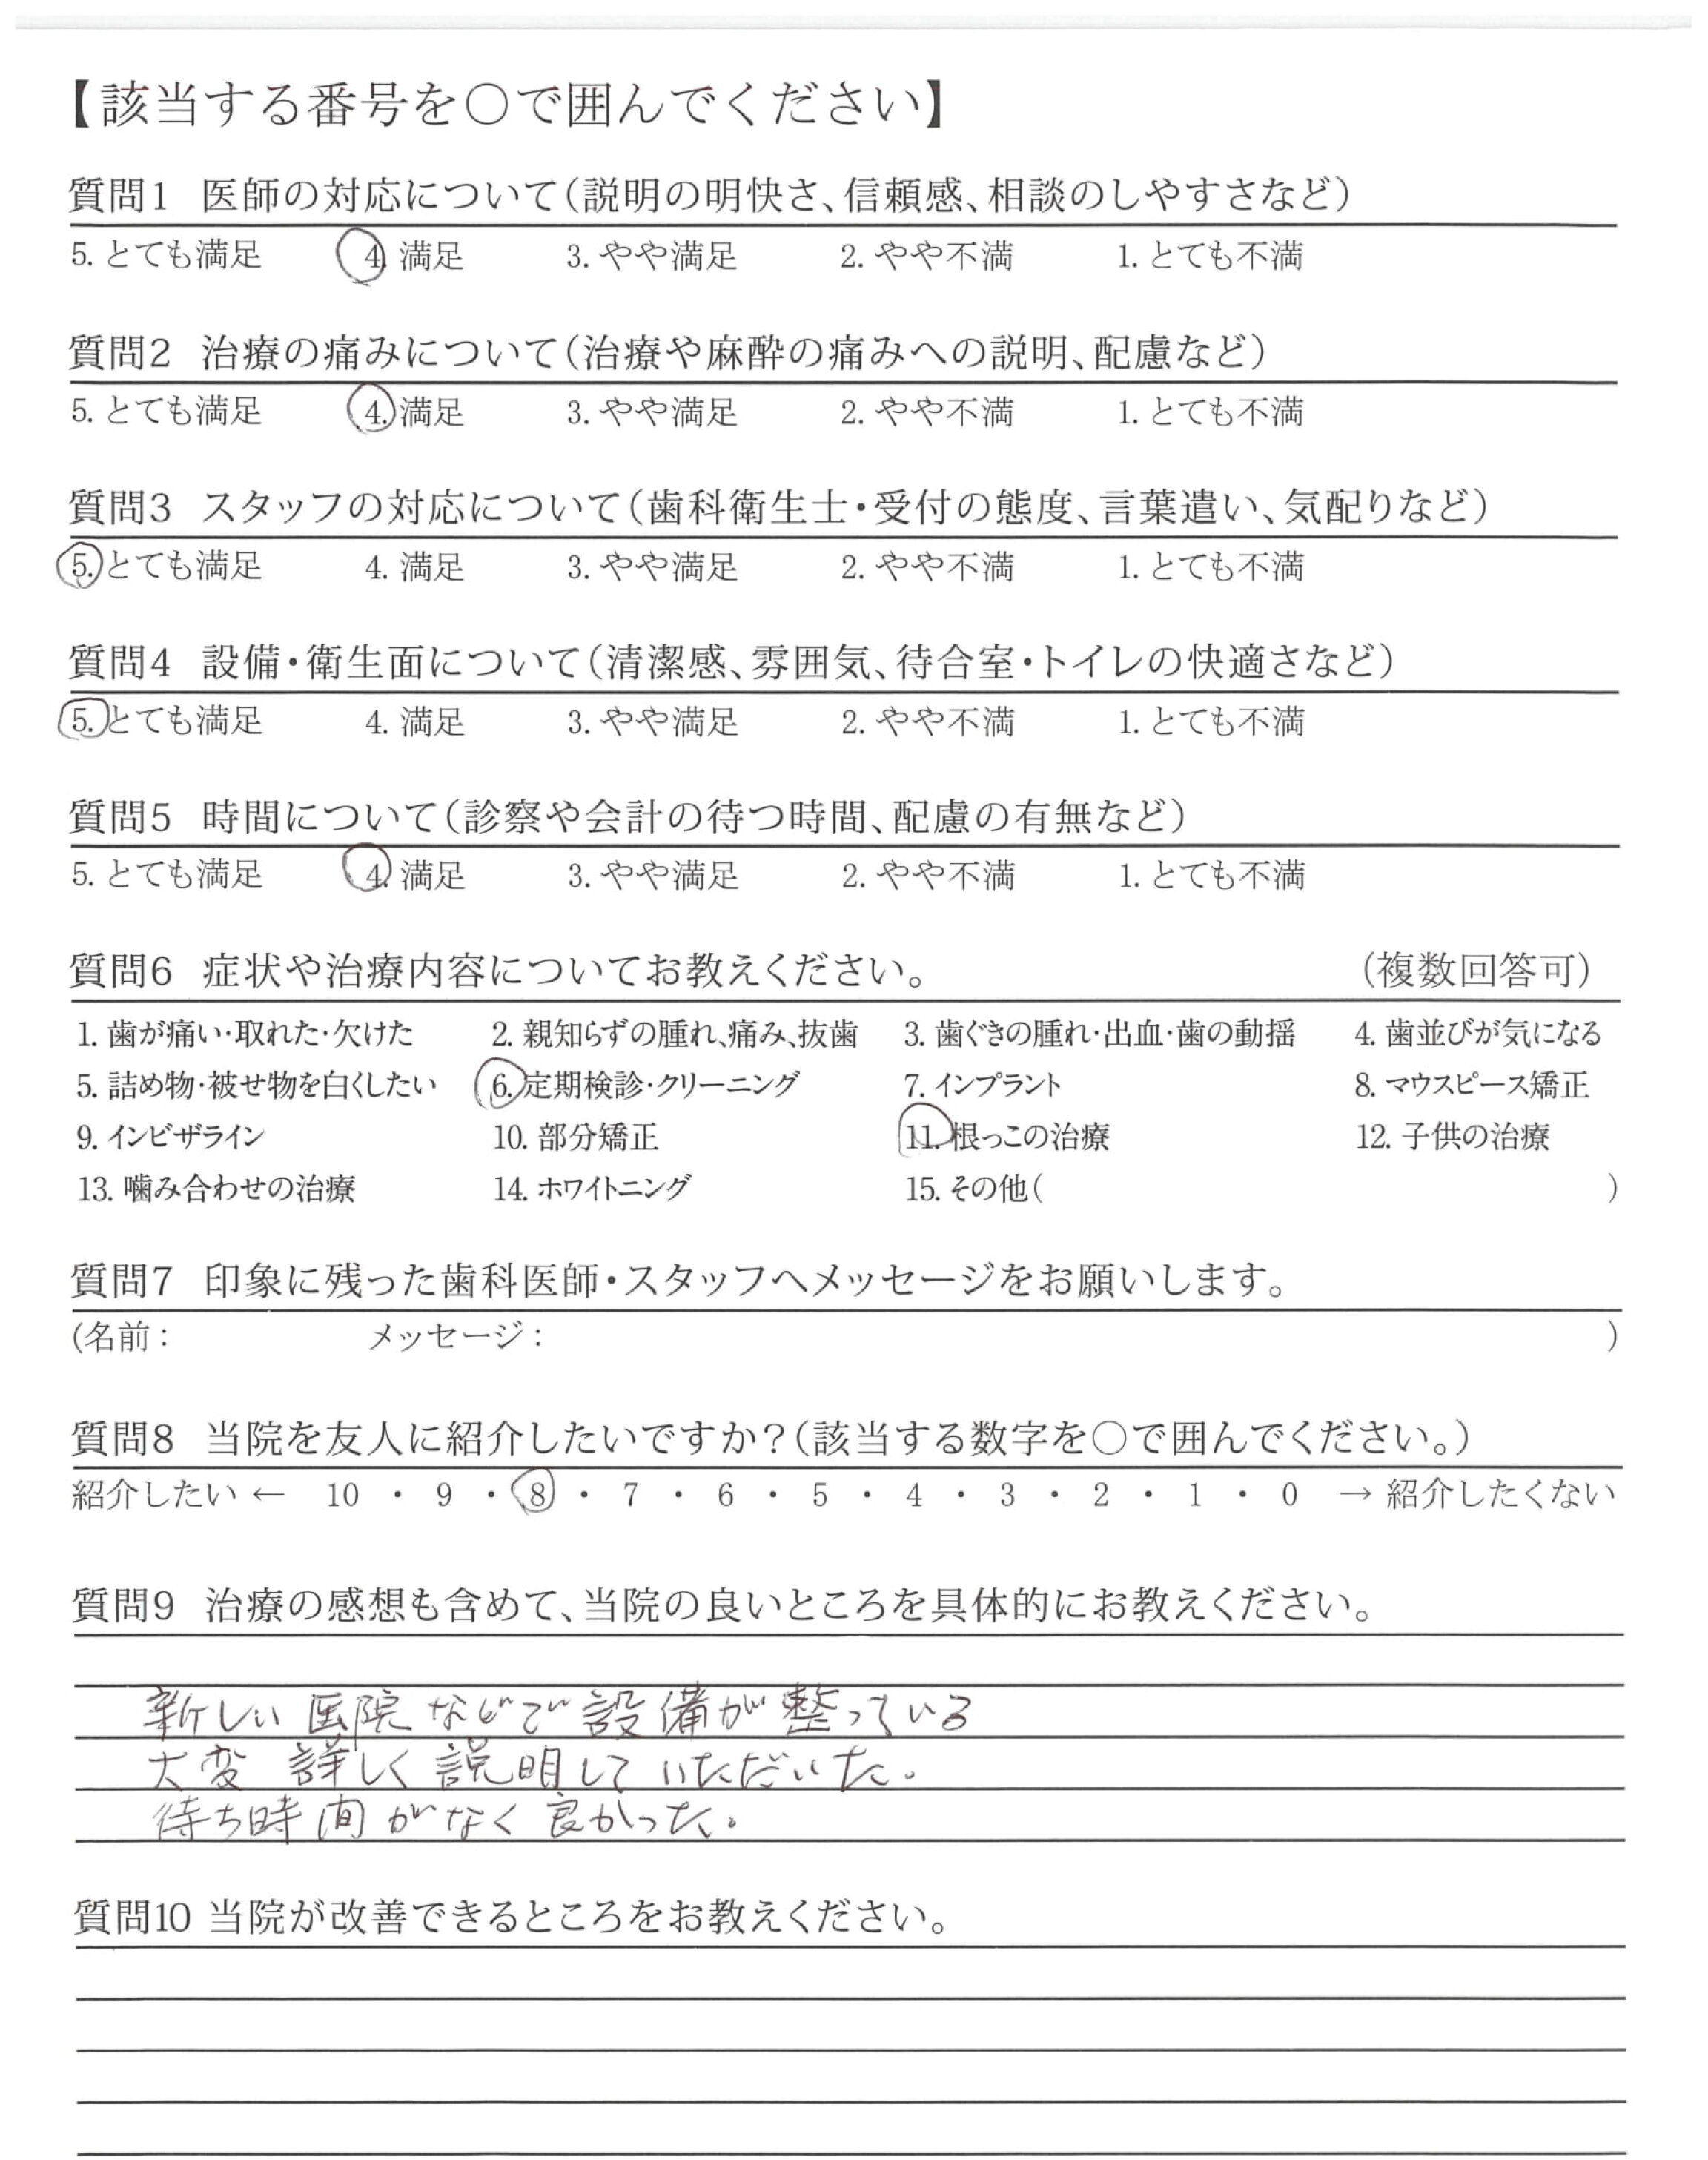 【該当する番号を〇で囲んでください】
質問1 医師の対応について(説明の明快さ、信頼感、相談のしやすさなど)
5. とても満足 4. 満足 3. やや満足 2. やや不満 1. とても不満
質問2 治療の痛みについて(治療や麻酔の痛みへの説明、配慮など)
5. とても満足 4. 満足 3. やや満足 2. やや不満 1. とても不満
質問3 スタッフの対応について(歯科衛生士・受付の態度、言葉遣い、気配りなど)
5. とても満足 4. 満足 3. やや満足 2. やや不満 1. とても不満
質問4 設備・衛生面について(清潔感、雰囲気、待合室・トイレの快適さなど)
5. とても満足 4. 満足 3. やや満足 2. やや不満 1. とても不満
質問5 時間について(診察や会計の待つ時間、配慮の有無など)
5. とても満足 4. 満足 3. やや満足 2. やや不満 1. とても不満
質問6 症状や治療内容についてお教えください。 (複数回答可)
1. 歯が痛い・取れた・欠けた 2. 親知らずの腫れ、痛み、抜歯 3. 歯ぐきの腫れ・出血・歯の動揺 4. 歯並びが気になる
5. 詰め物・被せ物を白くしたい 6. 定期検診・クリーニング 7. インプラント 8. マウスピース矯正
9. インビザライン 10. 部分矯正 11. 根っこの治療 12. 子供の治療
13. 噛み合わせの治療 14. ホワイトニング 15. その他( )
質問7 印象に残った歯科医師・スタッフへメッセージをお願いします。
(名前: メッセージ: )
質問8 当院を友人に紹介したいですか?(該当する数字を〇で囲んでください。)
紹介したい ← 10 ・ 9 ・ 8 ・ 7 ・ 6 ・ 5 ・ 4 ・ 3 ・ 2 ・ 1 ・ 0 → 紹介したくない
質問9 治療の感想も含めて、当院の良いところを具体的にお教えください。
新しい医院などで設備が整っている
大変 詳しく説明していただいた。
待ち時間がなく良かった。
質問10 当院が改善できるところをお教えください。